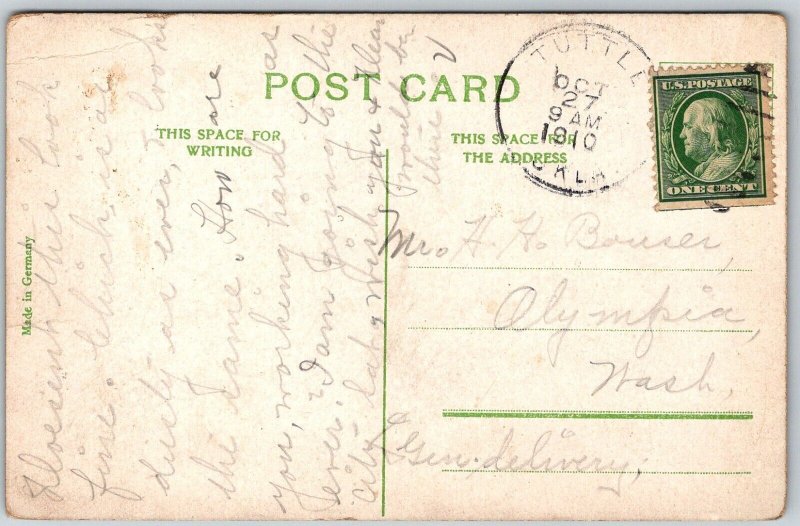 POST CARD
THIS SPACE FOR
WRITING
THIS SPACE FOR
THE ADDRESS
TUTTLE
OCT
27
9 AM
1910
OKLA
U.S. POSTAGE
ONE CENT
Made in Germany
Doesent this look
fine. Chick, is as
dusty as ever, & looks
the same. How are
you, working hard as
ever. I am going to the
City - Sat, wish you & Clear
would be
there
Mr. H. H. Bouser,
Olympia,
Wash,
Gen. delivery,